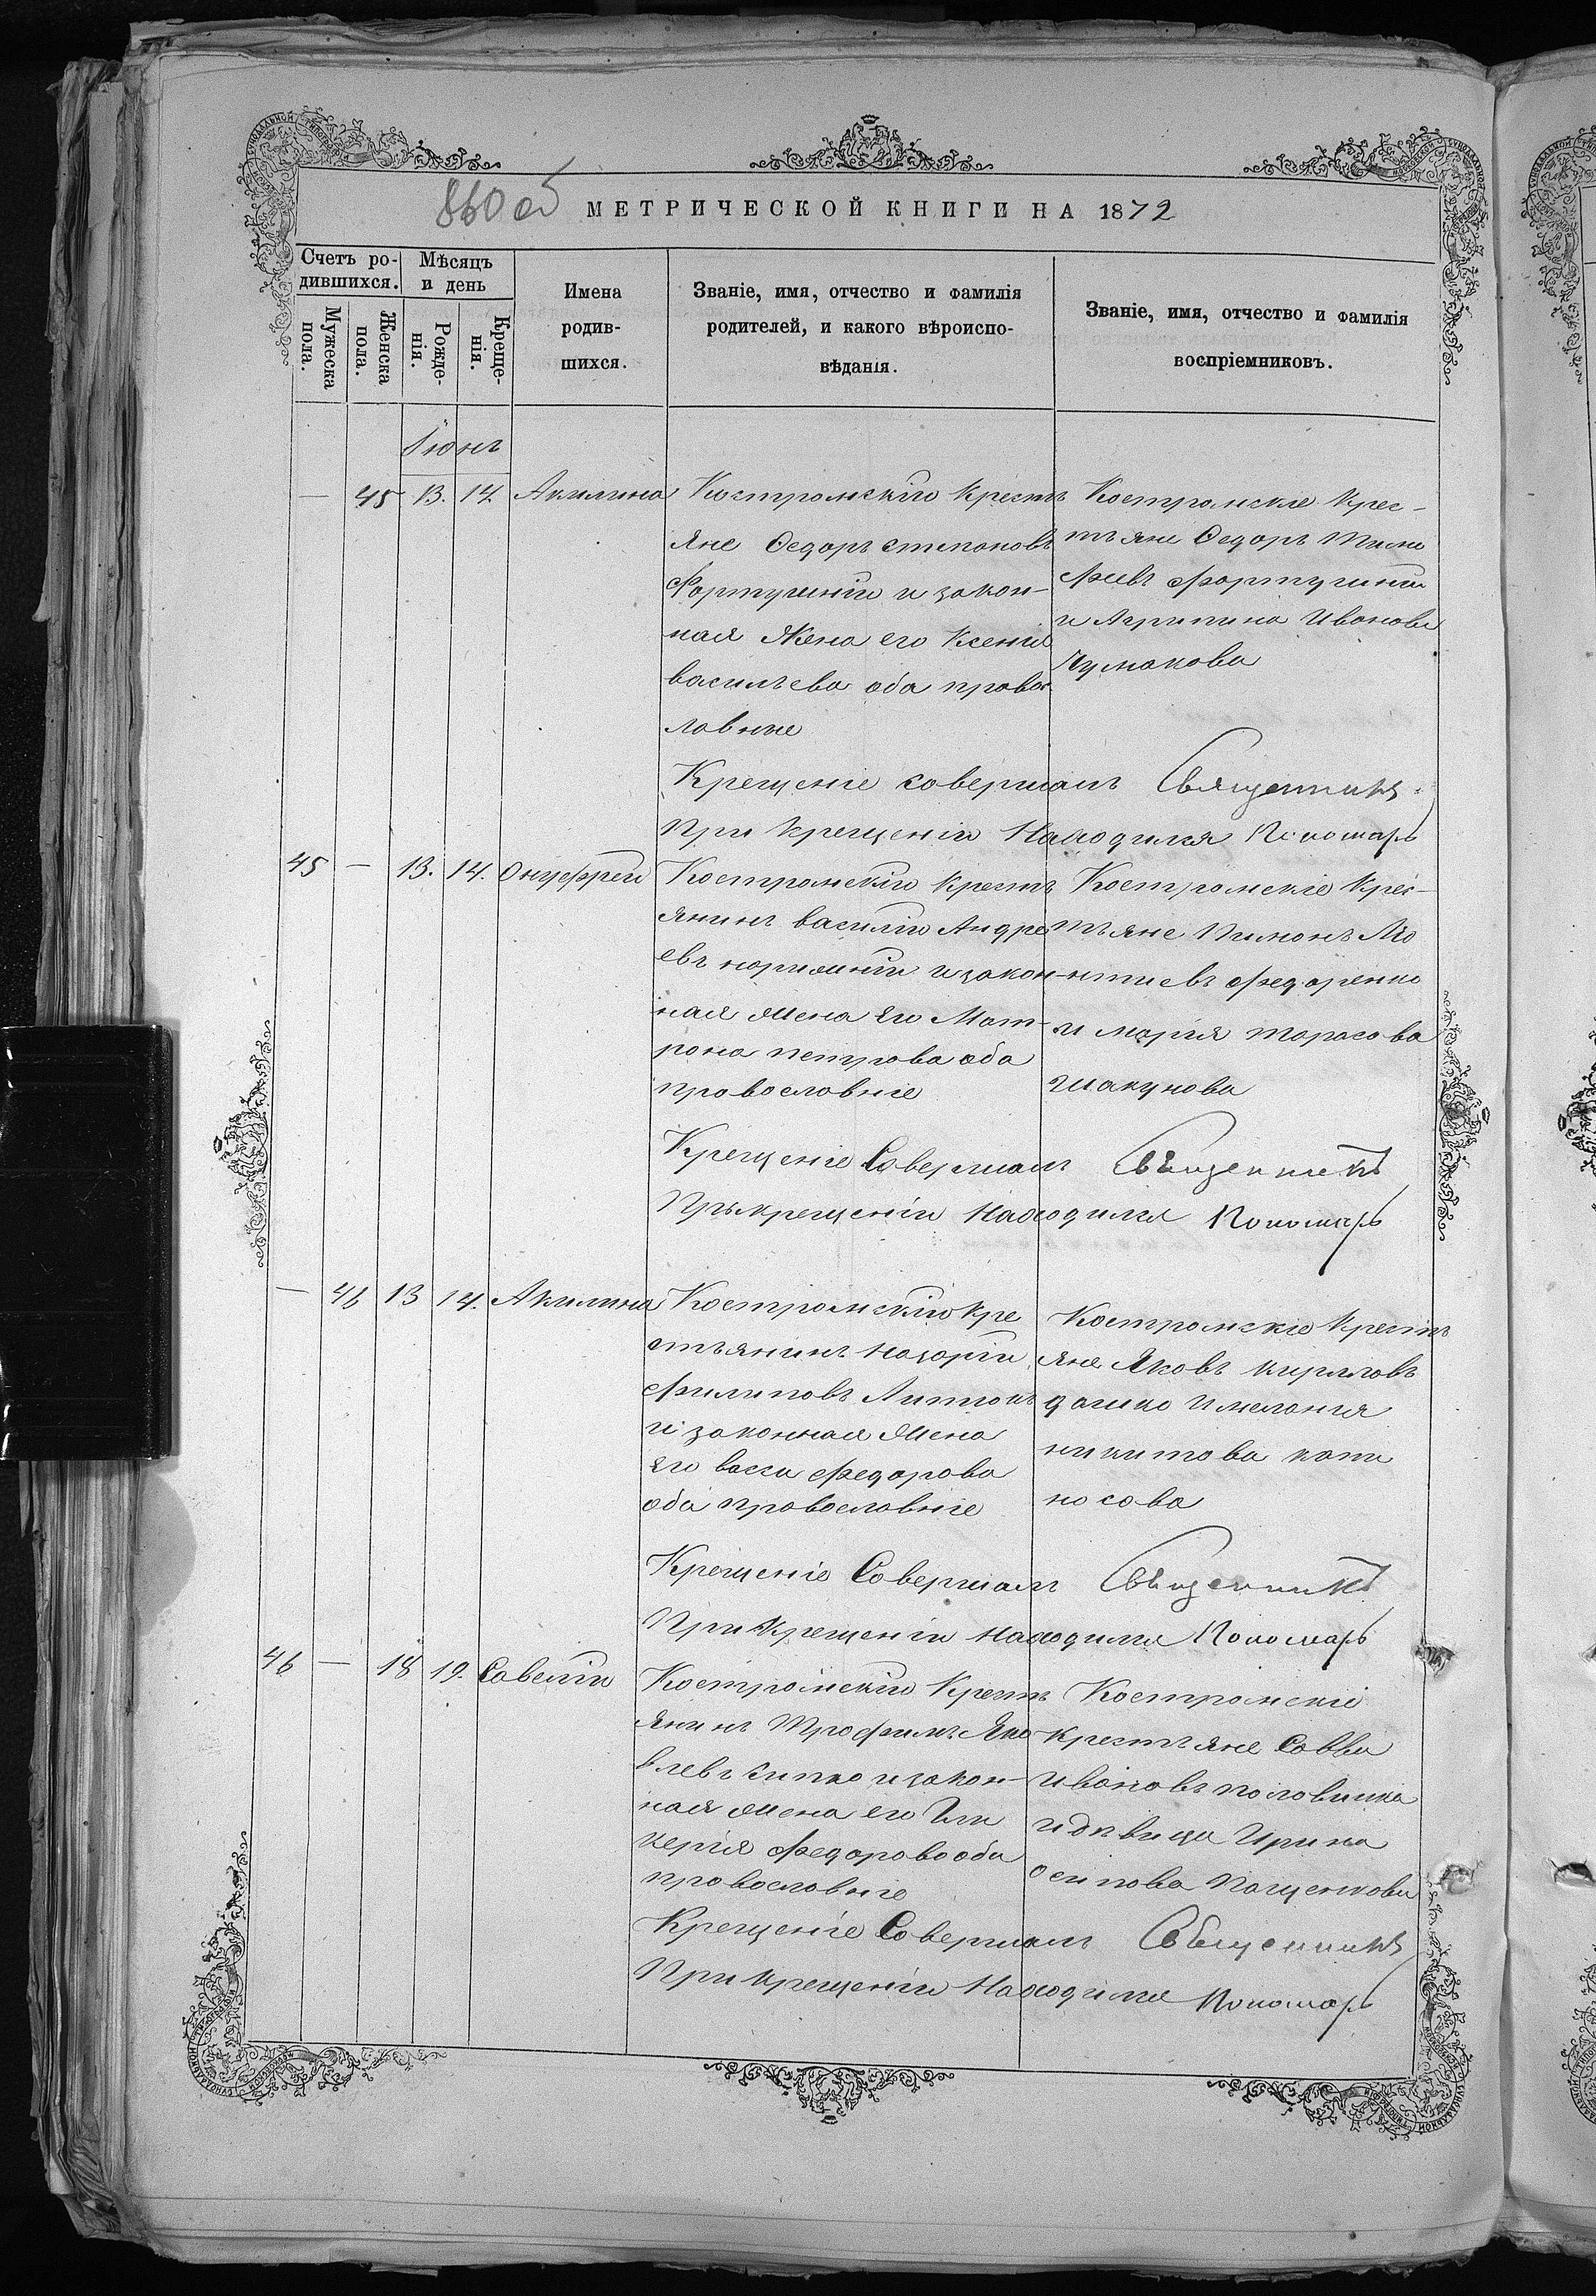 860 об МЕТРИЧЕСКОЙ КНИГИ НА 1872
Счетъ ро-
дившихся.
Мѣсяцъ
и день
Мужеска
пола.
Женска
пола.
Рожде-
нія.
Креще-
нія.
Имена
родив-
шихся.
Званіе, имя, отчество и фамилія
родителей, и какого вѣроиспо-
вѣданія.
Званіе, имя, отчество и фамилія
воспріемниковъ.
Іюнь
— 45 13. 14. Акилина
Костромскіи Кресть
яне Ѳедоръ степановъ
и закон-
ная Жена его Ксенія
васильева оба правос
лавные
Кос-тромские Крес-
тьяне Ѳедоръ Тимо
фивъ
и Агрипина Иванова
Чумакова
Крещеніе совершалъ Священникъ
При Крещеніи Находился Пономарь
45 — 13. 14. Онуфреи
Костромскіи Кресть
янинъ василіи Андре
евъ и закон-
ная жена его Мат-
рона петрова оба
православніе
Костромскіе Крес-
тьяне Пимонъ Ле
онтиевъ федоренко
и марія тарасова
шакунова
Крещеніе Совершалъ Священникъ
При крещеніи Находился Пономарь
— 46 13 14. Акилина
Костромскіи Кре
стьянинъ назаріи
филиповъ
и законная жена
его васса федорова
оба православніе
Костромскіе Кресть
яне Яковъ кириловъ
дашко и меланія
никитова
носова
Крещеніе Совершалъ Священникъ
При Крещеніи находился Пономарь
46 — 18 19. Савеліи
Костромскіи Кресть
янинъ Трофимъ Яко
влевъ сипко и закон-
ная жена его Гли
керія федорова оба
православніе
Костромскіе
крестьяне Савва
Ивановъ половинка
и дѣвица Ирина
осипова пащенкова
Крещеніе Совершалъ Священникъ
При крещеніи Находился Пономарь